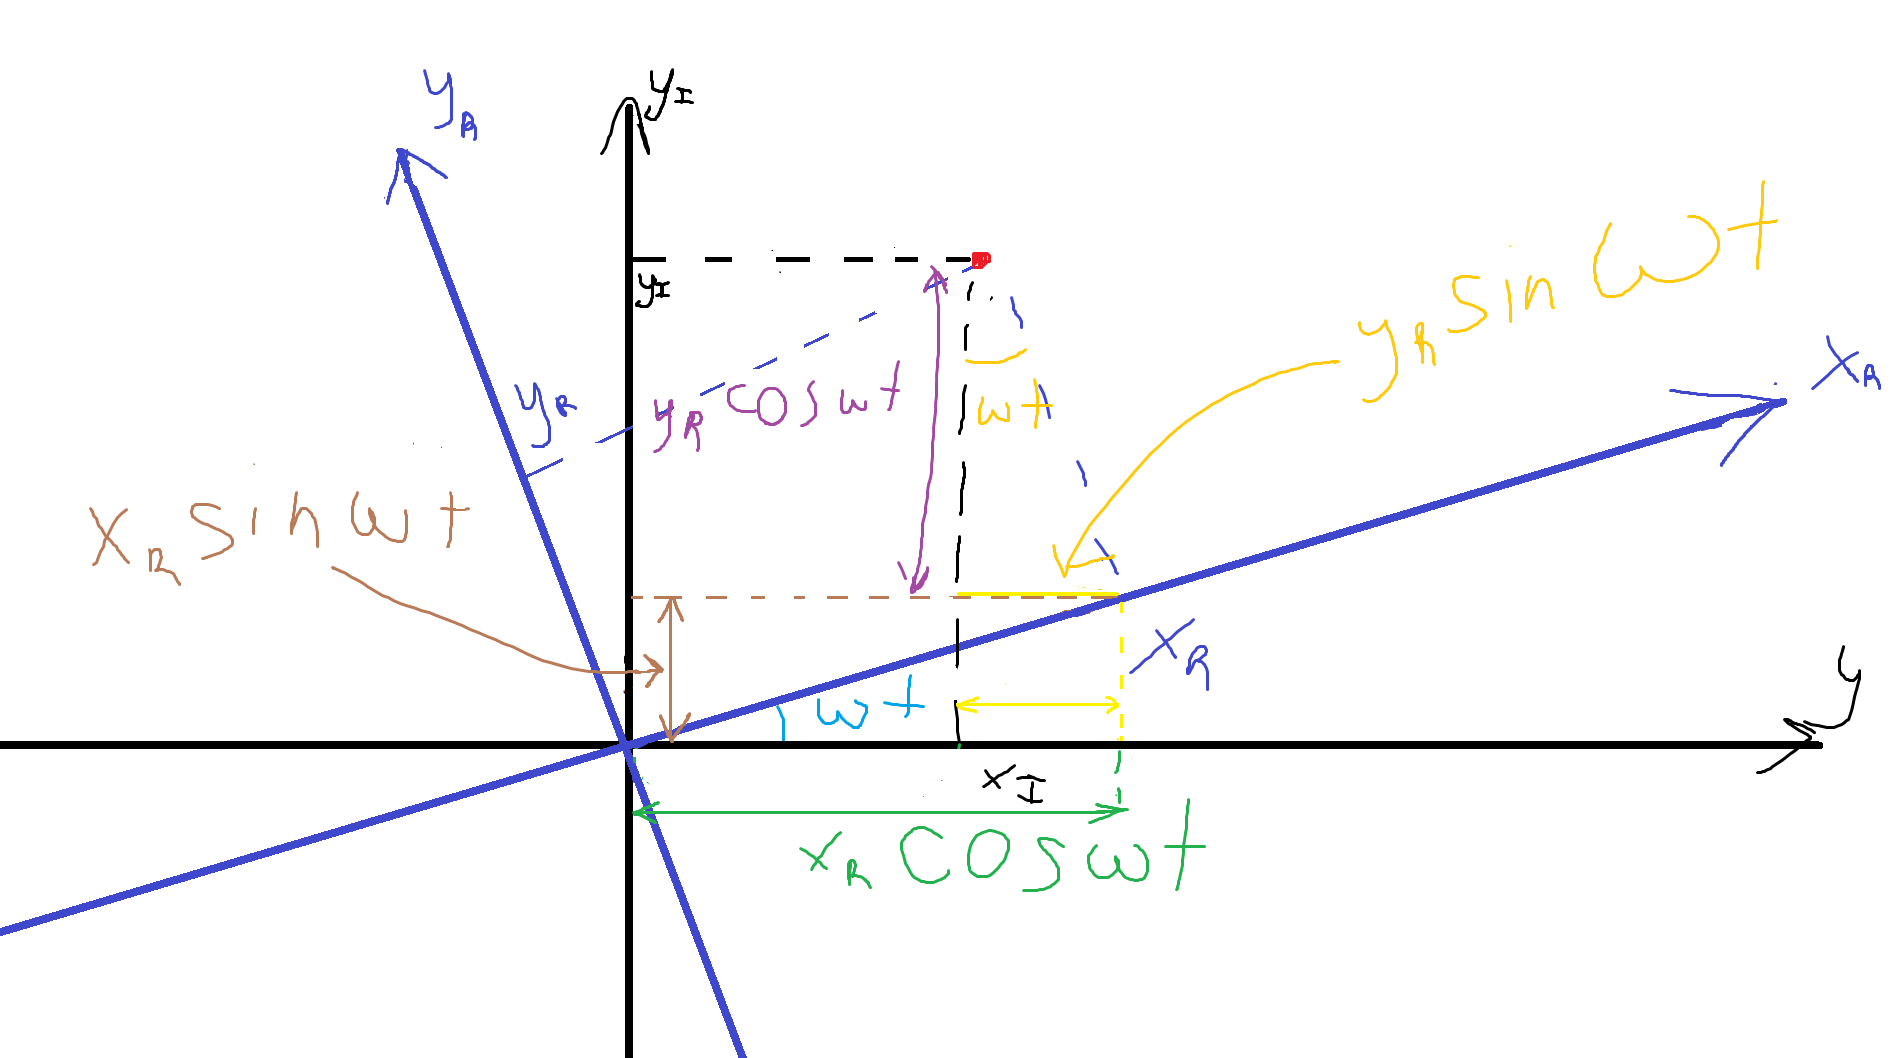 y_R
y_I
y_R sin ωt
x_R
y_I
y_R
y_R cos ωt
ωt
x_R sin ωt
x_R
ωt
y
x_I
x_R cos ωt